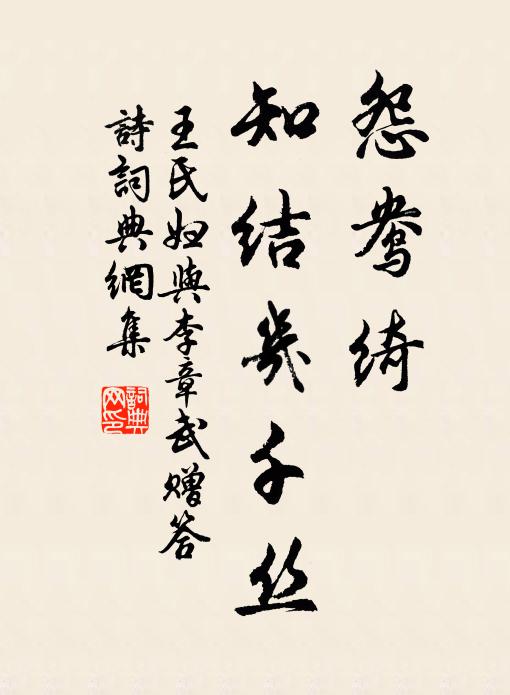 怨鸯绮
知结幾千丝
王氏妇與李章武赠答
詩詞典網集
詞典
网印